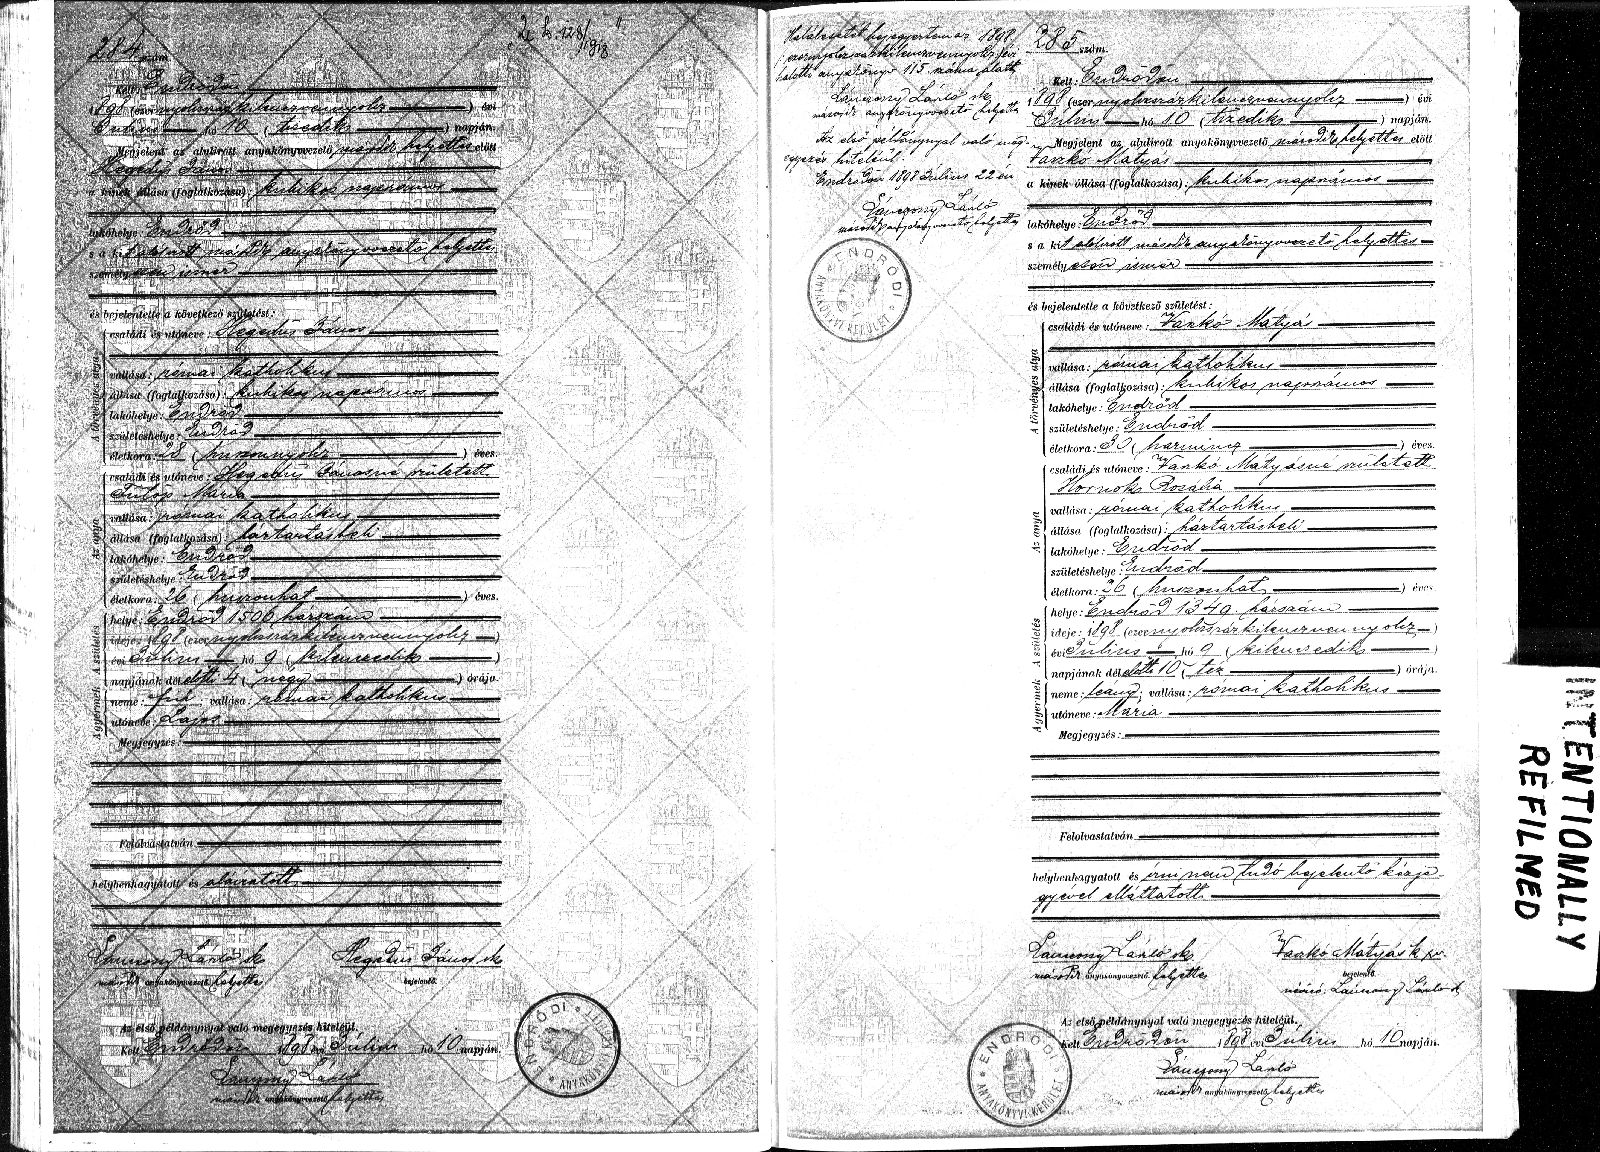 284 szám.
Kelt: Endrődön
1898 (ezernyolcszázkilenczvennyolcz) évi
Július hó 10 (tizedik) napján.
Megjelent az alulirott anyakönyvvezető, második helyettes előtt
Hegedüs János
a kinek állása (foglalkozása): kubikos napszámos
lakóhelye Endrőd
s a kit alulirott második anyakönyvvezető helyettes
személyesen ismer
és bejelentette a következő születést:
A törvényes atya
családi és utóneve: Hegedüs János
vallása: római katholikus
állása (foglalkozása): kubikos napszámos
lakóhelye: Endrőd
születéshelye: Endrőd
életkora: 28 (huszonnyolcz) éves.
Az anya
családi és utóneve: Hegedüs Jánosné született
Fülöp Mária
vallása: római katholikus
állása (foglalkozása): háztartásbeli
lakóhelye: Endrőd
születéshelye: Endrőd
életkora: 26 (huszonhat) éves.
A születés
helye: Endrőd 1506 házszám
ideje: 1898 (ezernyolcszázkilenczvennyolcz)
évi Július hó 9 (kilenczedik)
napjának délelőtti 4 (négy) órája.
A gyermek
neme: fiú vallása: római katholikus
utóneve: Lajos
Megjegyzés:
Felolvastatván
helybenhagyatott és aláiratott
Lánczony László sk
második anyakönyvvezető helyettes
Hegedüs János sk
bejelentő.
Az első példánynyal való megegyezés hiteléül.
Kelt Endrődön 1898 évi Július hó 10 napján.
Lánczony László
második anyakönyvvezető helyettes
ENDRŐDI
Halálesetét bejegyeztem az 1898
ezernyolczszázkilenczvennyolcz évi
halotti anyakönyv 115 száma alatt
Lánczony László sk
második anyakönyvvezető helyettes
Az első példánynyal való meg-
egyezés hiteléül.
Endrődön 1898 Július 22 én
Lánczony László
második anyakönyvvezető helyettes
ENDRŐDI ANYAKÖNYVI KERÜLET
285 szám.
Kelt: Endrődön
1898 (ezernyolcszázkilenczvennyolcz) évi
Július hó 10 (tizedik) napján.
Megjelent az alulirott anyakönyvvezető második helyettes előtt
Vaszkó Mátyás
a kinek állása (foglalkozása): kubikos napszámos
lakóhelye: Endrőd
s a kit alulirott második anyakönyvvezető helyettes
személyesen ismer
és bejelentette a következő születést:
A törvényes atya
családi és utóneve: Vaszkó Mátyás
vallása: római katholikus
állása (foglalkozása): kubikos napszámos
lakóhelye: Endrőd
születéshelye: Endrőd
életkora: 30 (harmincz) éves.
Az anya
családi és utóneve: Vaszkó Mátyásné született
Hornok Rozália
vallása: római katholikus
állása (foglalkozása): háztartásbeli
lakóhelye: Endrőd
születéshelye: Endrőd
életkora: 26 (huszonhat) éves.
A születés
helye: Endrőd 1340 házszám
ideje: 1898 (ezernyolcszázkilenczvennyolcz)
évi Július hó 9 (kilenczedik)
napjának délelőtti 10 (tiz) órája.
A gyermek
neme: leány; vallása: római katholikus
utóneve: Mária
Megjegyzés:
Felolvastatván
helybenhagyatott és irni nem tudó bejelentő kézje-
gyével elláttatott
Lánczony László sk.
második anyakönyvvezető helyettes
Vaszkó Mátyás
bejelentő.
Lánczony László sk
Az első példánynyal való megegyezés hiteléül.
Kelt Endrődön 1898 évi Július hó 10 napján.
Lánczony László
második anyakönyvvezető helyettes
ENDRŐDI ANYAKÖNYVI KERÜLET
INTENTIONALLY
REFILMED